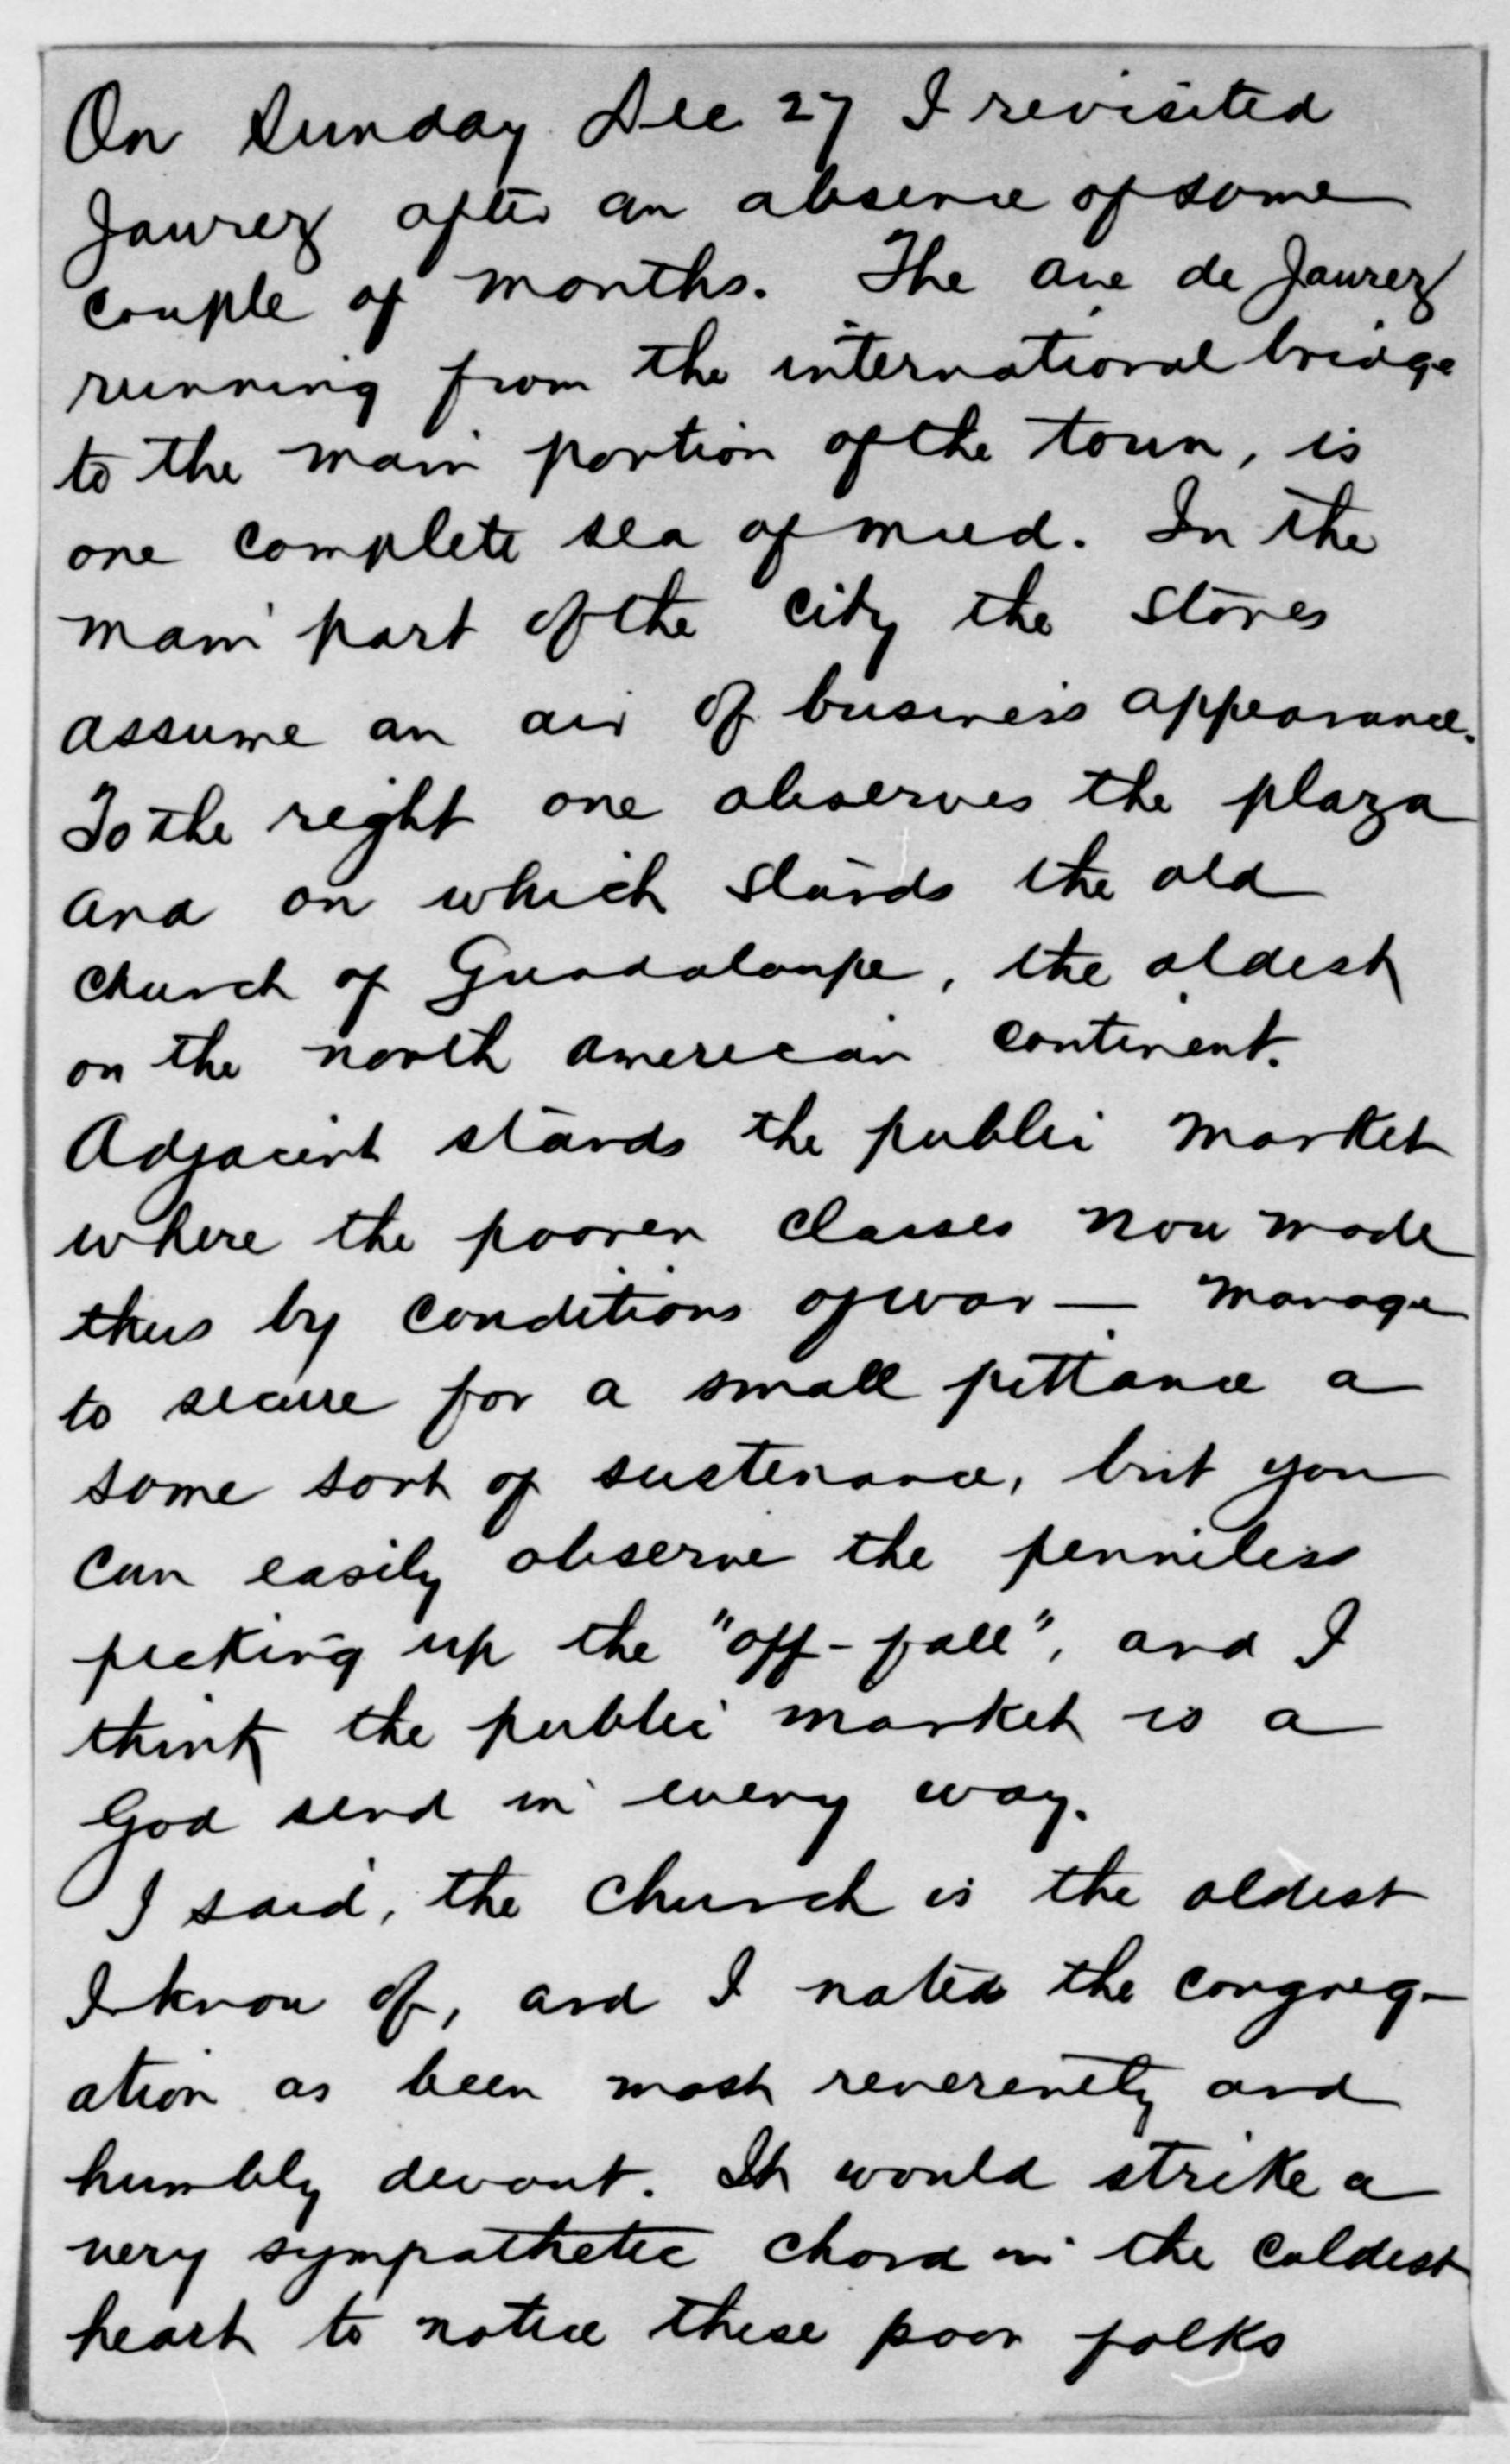 On Sunday Dec 27 I revisited
Jaurez after an absence of some
couple of months. The Ave de Jaurez
running from the international bridge
to the main portion of the town, is
one complete sea of mud. In the
main part of the city the stores
assume an air of business appearance.
To the right one observes the plaza
and on which stands the old
church of Guadaloupe, the oldest
on the north american continent.
Adjacent stands the public market
where the poorer classes now made
thus by conditions of war — manage
to secure for a small pittance a
some sort of sustenance, but you
can easily observe the penniless
picking up the "off-fall", and I
think the public market is a
God send in every way.
I said, the church is the oldest
I know of, and I noted the congreg-
ation as been most reverently and
humbly devout. It would strike a
very sympathetic chord in the coldest
heart to notice these poor folks